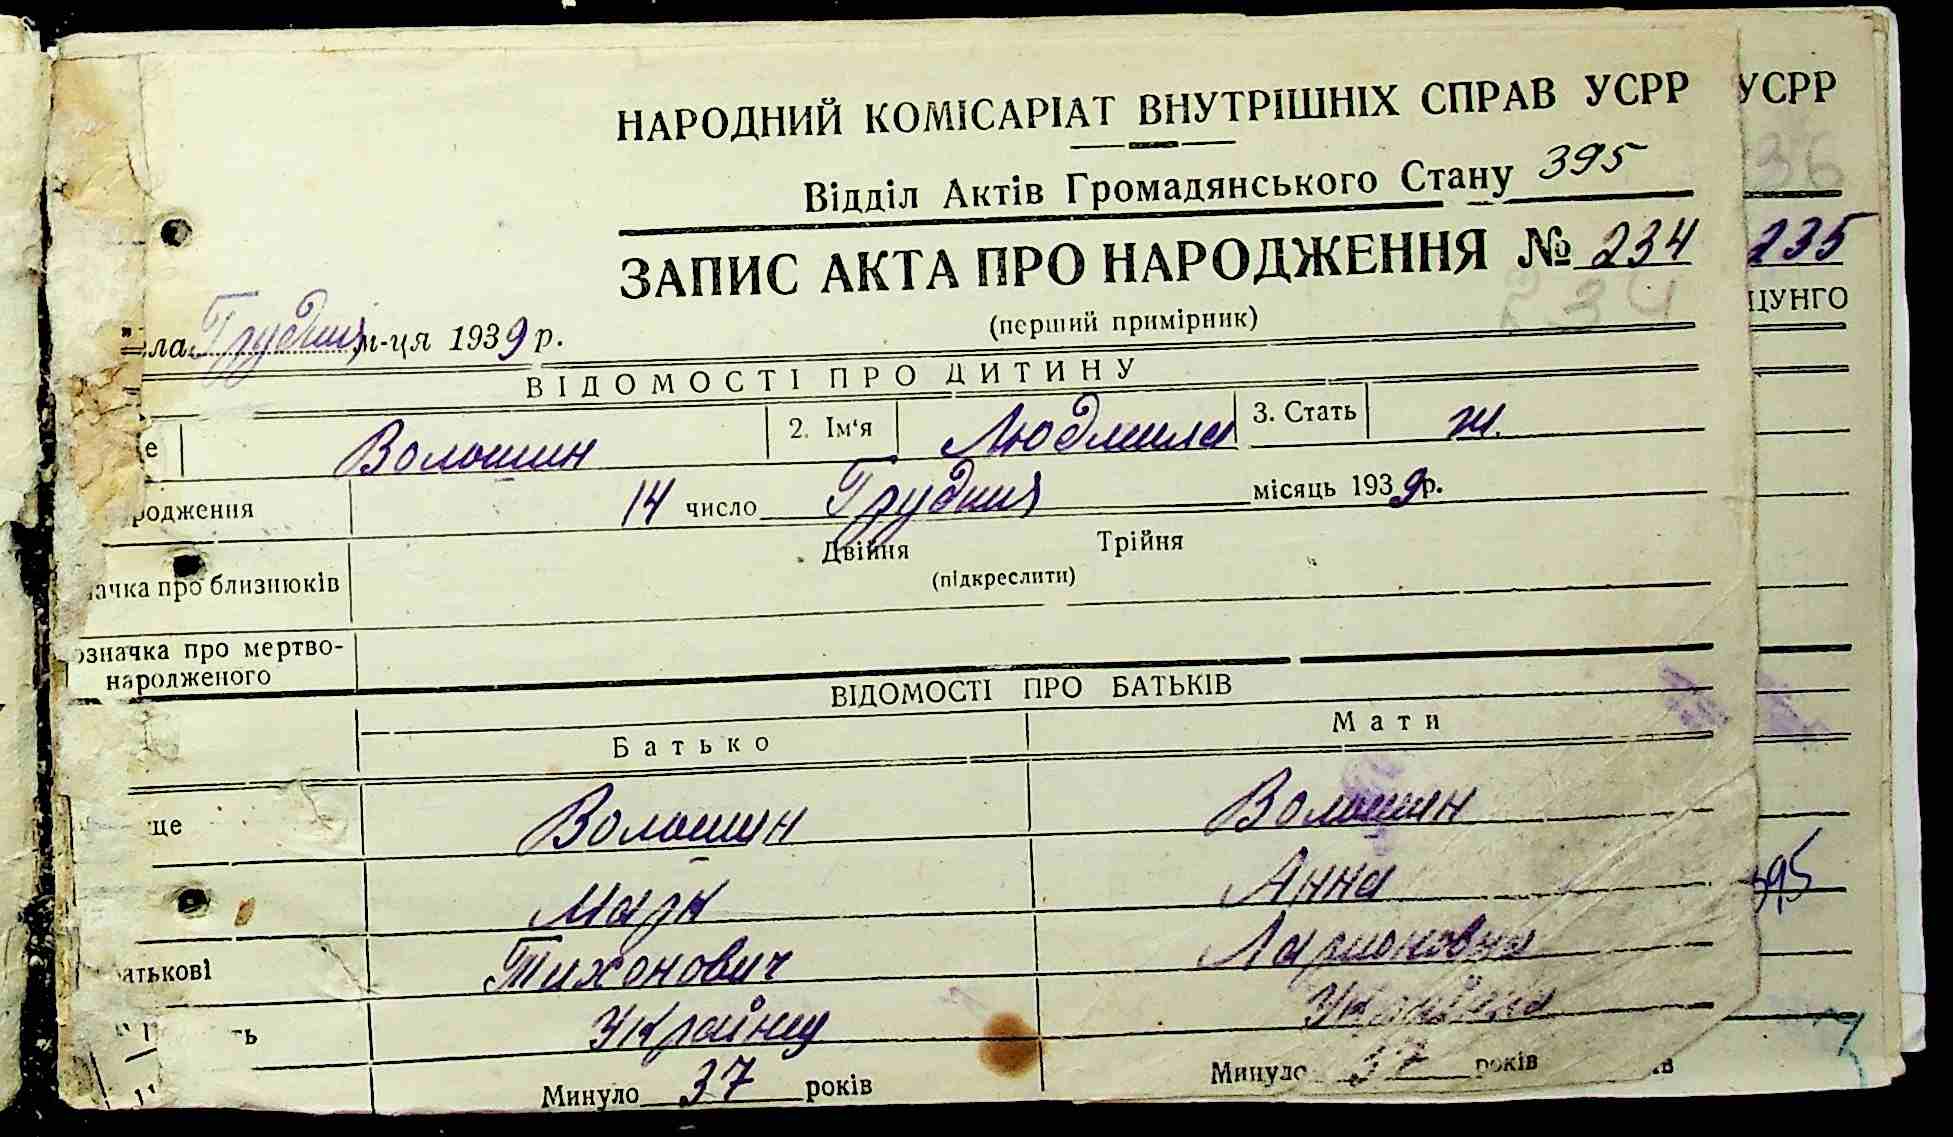 НАРОДНИЙ КОМІСАРІАТ ВНУТРІШНІХ СПРАВ УСРР УСРР
Відділ Актів Громадянського Стану 395 36
ЗАПИС АКТА ПРО НАРОДЖЕННЯ № 234 235
(перший примірник) 234 ЦУНГО
ла Грудня м-ця 1939 р.
ВІДОМОСТІ ПРО ДИТИНУ
е Волошин 2. Ім'я Людмила 3. Стать ж.
родження 14 число Грудня місяць 1939 р.
Двійня Трійня
ачка про близнюків (підкреслити)
означка про мертво-
народженого
ВІДОМОСТІ ПРО БАТЬКІВ
Батько Мати
ще Волошин Волошин
Марк Анна 395
атькові Тихонович Ларионовна
ть Українец Українка
Минуло 37 років Минуло 37 років ів